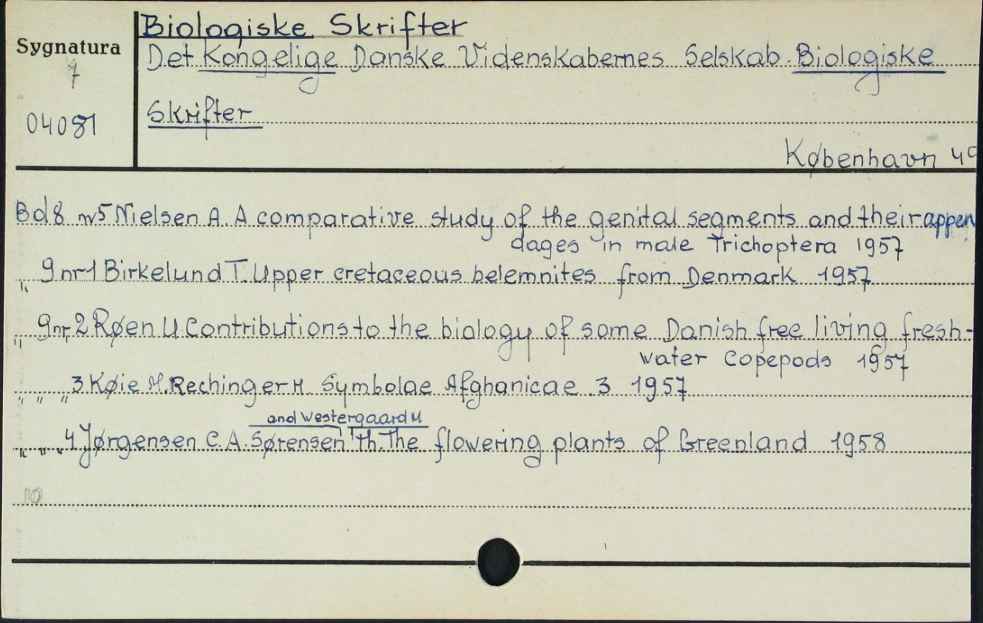 Biologiske Skrifter
Sygnatura
7
04081
Det Kongelige Danske Videnskabernes Selskab. Biologiske
Skrifter
København 49
Bd 8 nr5 Nielsen A. A comparative study of the genital segments and their appen
dages in male Trichoptera 1957
" 9 nr1 Birkelund T. Upper cretaceous belemnites from Denmark 1957
" 9 nr 2 Røen U Contributions to the biology of some Danish free living fresh-
water Copepods 1957
" " " 3 Køie M. Rechinger H Symbolae Afghanicae 3 1957
and Westergaard M
" " " 4 Jørgensen C.A. Sørensen Th. The flowering plants of Greenland 1958
10